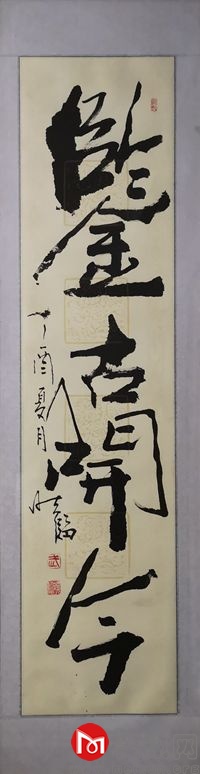 鑒古開今
丁酉夏月